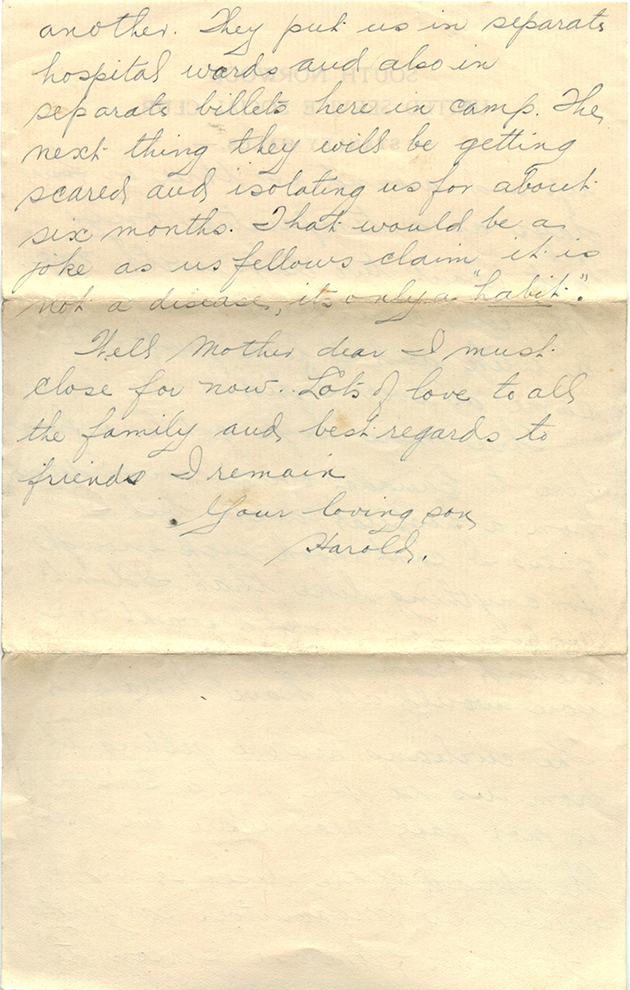 another. They put us in separate
hospital wards and also in
separate billets here in camp. The
next thing they will be getting
scared and isolating us for about
six months. That would be a
joke as us fellows claim it is
not a disease, its only a "habit".
Well Mother dear I must
close for now. Lots of love to all
the family and best regards to
friends I remain
Your loving son
Harold.